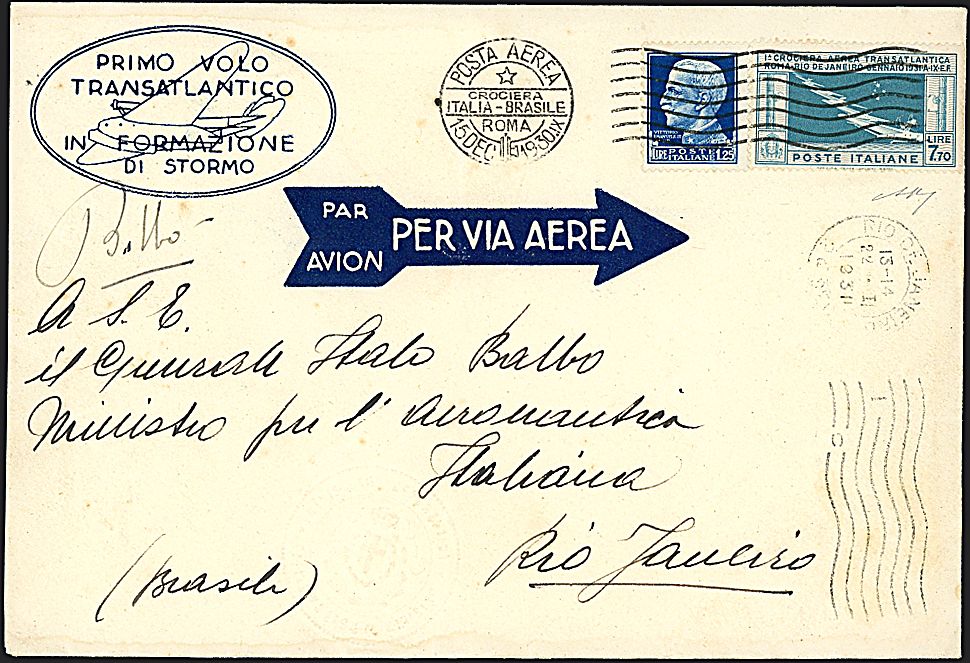 PRIMO VOLO
TRANSATLANTICO
IN FORMAZIONE
DI STORMO
POSTA AEREA
CROCIERA
ITALIA-BRASILE
ROMA
15 DEC 1930 IX
POSTE
ITALIANE
LIRE 1,25
1ª CROCIERA AEREA TRANSATLANTICA
ROMA-RIO DE JANEIRO GENNAIO 1931 A.IX E.F.
LIRE
7,70
POSTE ITALIANE
PAR
AVION
PER VIA AEREA
Balbo
RIO DE JANEIRO
13-14
22 . I
1931
A S. E.
il Generale Italo Balbo
Ministro per l'Aeronautica
Italiana
Rio Janeiro
(Brasile)